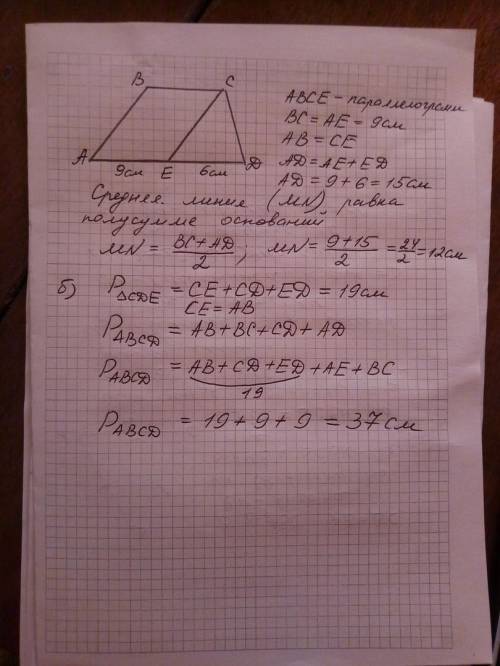 B C
A 9см E 6см D
ABCE - параллелограмм
BC = AE = 9см
AB = CE
AD = AE + ED
AD = 9 + 6 = 15см
Средняя линия (MN) равна
полусумме оснований
MN = \frac{BC + AD}{2} ; MN = \frac{9+15}{2} = \frac{24}{2} = 12см
б) P△CDE = CE + CD + ED = 19см
CE = AB
P ABCD = AB + BC + CD + AD
P ABCD = AB + CD + ED + AE + BC
19
P ABCD = 19 + 9 + 9 = 37см